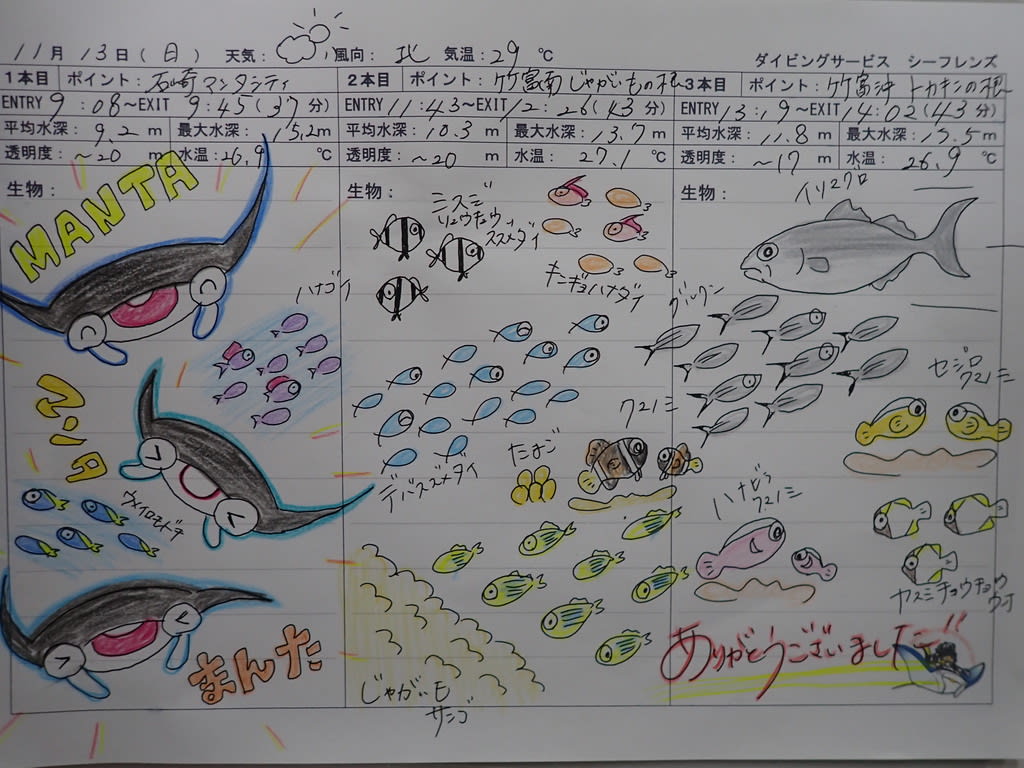 11月 13日(日) 天気: 風向: 北 気温: 29 ℃
ダイビングサービス シーフレンズ
1本目 ポイント: 石崎マンタシティ
ENTRY 9:08～EXIT 9:45(37分)
平均水深: 9.2 m 最大水深: 15.2m
透明度: ~20 m 水温: 26.9 ℃
生物:
MANTA
ハナゴイ
マンタ
まんた
2本目 ポイント: 竹富南じゃがいもの根
ENTRY 11:43～EXIT 12:26(43分)
平均水深: 10.3 m 最大水深: 13.7m
透明度: ~20 m 水温: 27.1 ℃
生物:
ミスジ
リュウキュウ
スズメダイ
キンギョハナダイ
デバスズメダイ
クマノミ
たまご
じゃがいも
サンゴ
3本目 ポイント: 竹富沖 トカキンの根
ENTRY 13:19～EXIT 14:02(43分)
平均水深: 11.8 m 最大水深: 15.5m
透明度: ~17 m 水温: 26.9 ℃
生物:
イソマグロ
グルクン
セジロ
クマノミ
ハナビラ
クマノミ
ヤスジチョウチョウ
ウオ
ありがとうございました!!